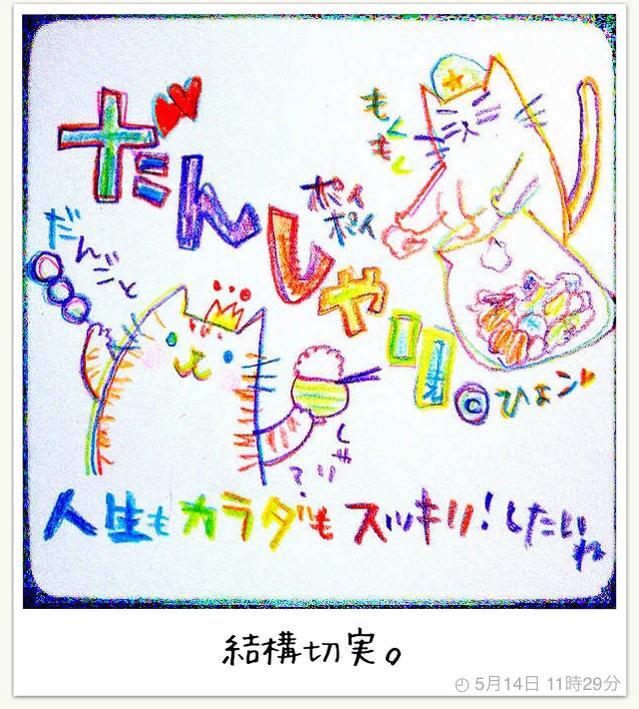 だんしゃり
もくもく
ポイ
ポイ
だんごと
しゃり
©ひょン
人生もカラダもスッキリ!したいね
結構切実。
5月14日 11時29分